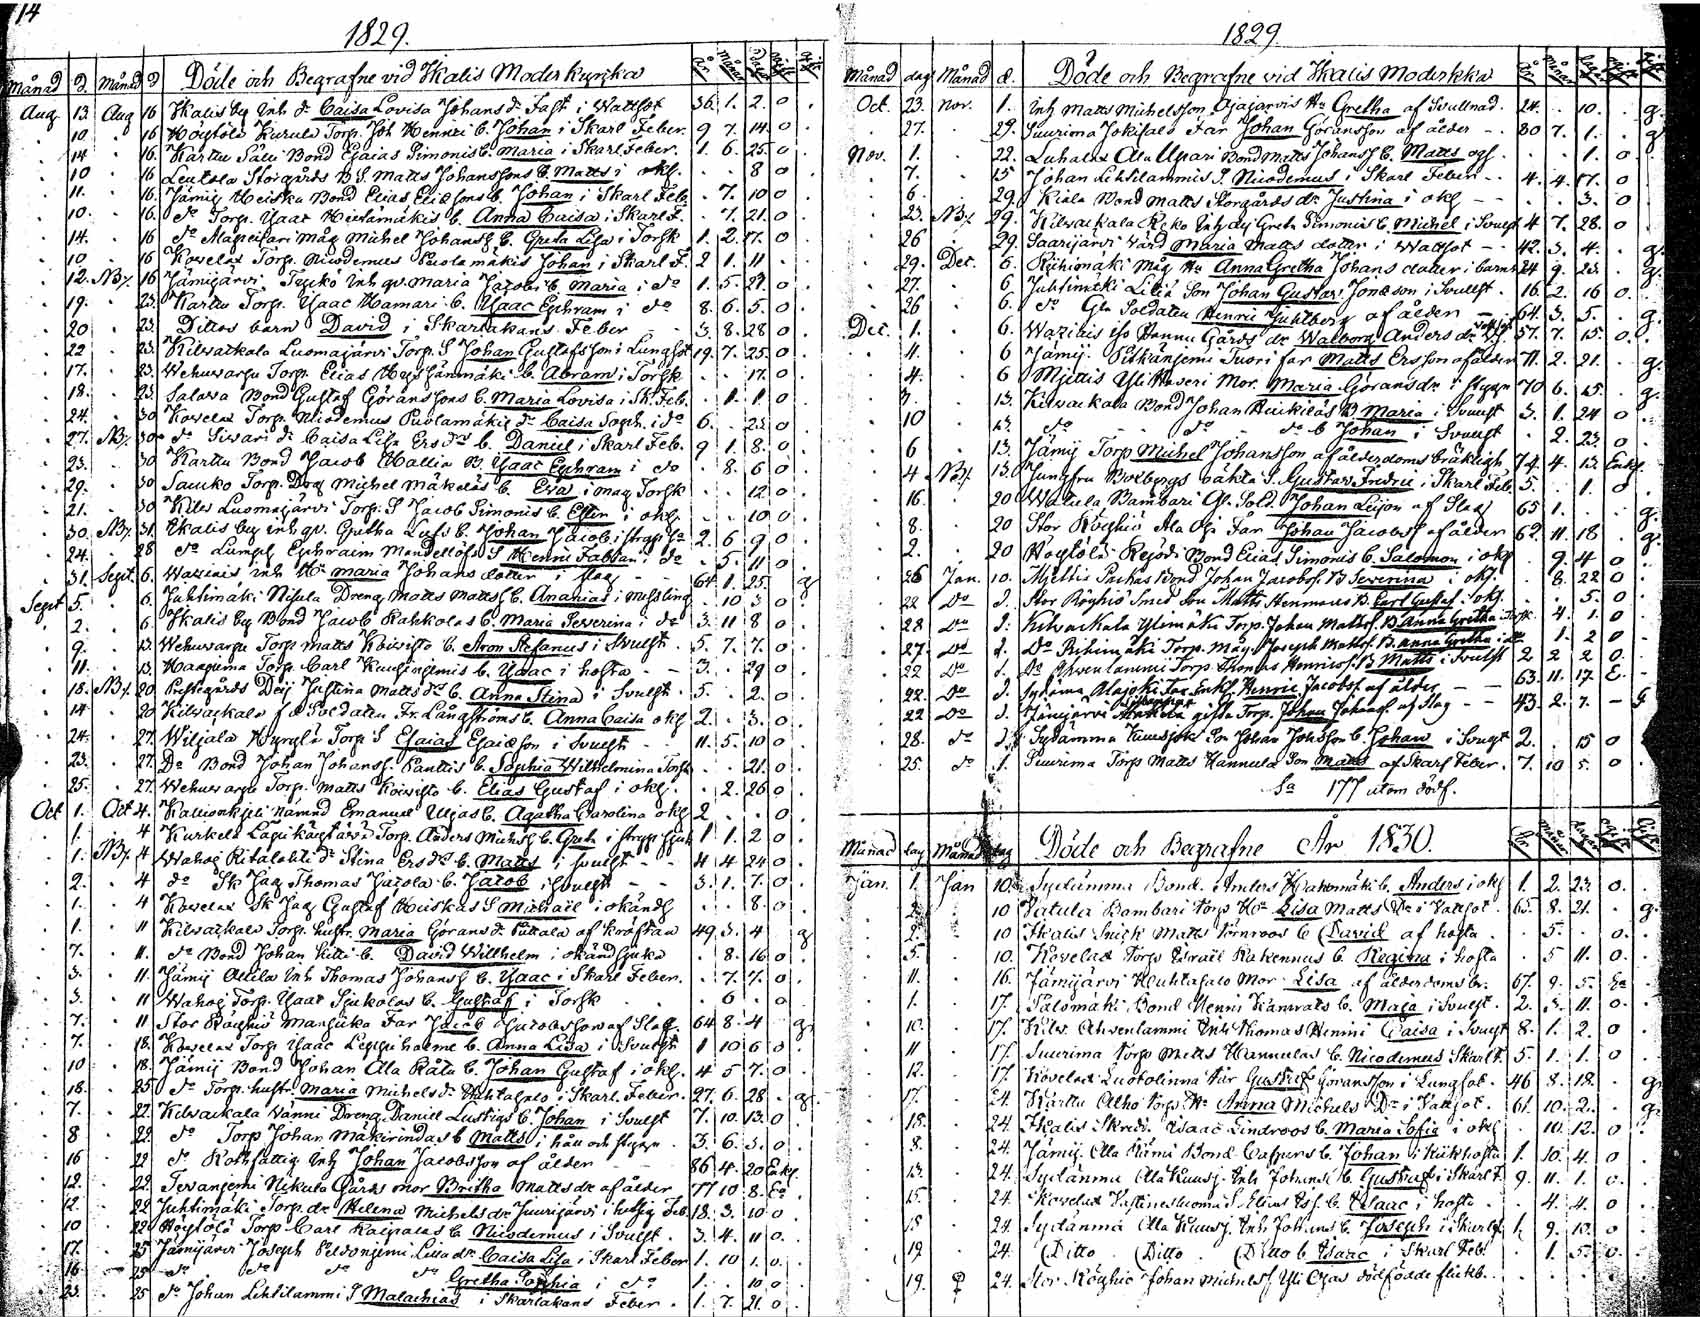 14
1829.
Månad D. Månad D Döde och Begrafne vid Ikalis Moderkyrka År Månar Dagar
Aug 13 Aug 16 Ikalis by Inh dr Caisa Lovisa Johans dr i Wattsot 36. 1. 2. 0
10 16 Höytölä Kurula Torp. Joh Henrici C. Johan i Skarl Feber. 9 7. 14. 0
14 16. Karttu Säki Bond Esaias Simonis C. Maria i Skarl Feber. 1. 6. 25. 0
10 16 Leutola Storgårds B S. Matts Johanssons C Matts i okl. 8 0
11. 16. Jämij Heiska Bond Elias Elics sons C. Johan i Skarl Feb. 7. 10 0
10. 16. do Torp. Isaac Heitämäkis C. Anna Caisa i Skarl F. 7. 21. 0
14. 16 do Måg Michel Johanss C. Greta Lisa i Torsk 1. 2. 17. 0
10 16 Kovelax Torp. Nicodemus Puolamäkis Johan i Skarl F. 2 1. 11 0
12. NB. 16 Jämijärvi Inh qv. Maria Jacobs C. Maria i do 1. 5. 27. 0
19. 23. Karttu Torp. Isaac Hamari C. Isaac Ephram i do 8. 6. 5. 0
20 23. Dittos barn David i Skarlakans Feber 3. 8. 28 0
22 23. Kilvackala Luomajärvi Torp. S Johan Gustafsson i Lungsot 19. 7. 25. 0
17. 23. Wehuvarpu Torp. Elias C. Abram i Torsk 17. 0
18. 23. Salava Bond Gustaf Göranssons C. Maria Lovisa i Sk. Feb. 1. 1. 0
24. 30 Kovelax Torp. Nicodemus Puolamäkis dr Caisa Soph. i do 6. 23. 0
27. NB. 30 do Sivari dr Caisa Lisa Ers drs C. Daniel i Skarl Feb. 9 1. 8. 0
23. 30 Karttu Bond Jacob Mallia B. Isaac Ephram i do 8. 6 0
29. 30 Sauko Torp. Drg Michel Mäkeläs C. Eva i mag Torsk 12. 0
21. 30 Kilv Luomajärvi Torp. S Jacob Simonis C. Ester i okl. 10 0
30. NB. 31. Ikalis by inh qv. Gretha C. Johan Jacob i 2. 6 9 0
24. 28 do Lumpl Ephraim Mendellöfs S Henric Fabian i do 5. 11 0
31. Sept. 6. Wazinis Inh Hu Maria Johans dotter i slag 64. 1. 25. g
Sept 5. 6. Juhtimäki Nisula Dreng Matts Matts C. Ananias i Messling 10 3. 0
2. 6 Ikalis by Bond Jacob Kahkolas C. Maria Severina i do 3. 11 8 0
9. 13. Wehuvarpu Torp. Matts Koivisto C. Aron Stefanus i Svulst 5. 7. 7. 0
11. 13. Haapima Torp. Carl C. Isaac i hosta 3. 29. 0
18. NB. 20 Prestgårds Deij Justina Matts dr C. Anna Stina i Svulst. 5. 2. 0
14. 20 Kilvackala f d Soldaten Fr. Långströms C. Anna Caisa okl. 2. 3. 0
24. 27. Wiljala Torp S Esaias Esaicsson i Svulst 11. 5. 10 0
23. 27. Do Bond Johan Johanss. Panttis C. Sophia Wilhelmina Torsk 21. 0
25. 27. Wehuvarpu Torp. Matts Koivisto C. Elias Gustaf i okl. 2. 26 0
Oct 1. Oct 4. Nämnd Emanuel Uljas C. Agatha Carolina okl 2 0
1. 4 Kurkela Torp. Anders Michels C. Greta i 1. 1. 2 0
1. NB. 4 Wahoj Ritalahti dr Stina Ers drs C. Matts i Svulst 4. 4 24 0
2. 4 do Sk Jag Thomas Jacola C. Jacob i Svulst 3. 1. 7. 0
1. 4 Kovelax Sk Jag Gustaf Heiskas S Michaël i okändt 8. 0
1. 11 Kilvackala Torp. hustr. Maria Görans dr Puttala af kräftan 49 3. 4 g
7. 11. do Bond Johan Kitti C. David Willhelm i okänd sjuka 8. 16 0
3. 11. Jämij Attila Inh Thomas Johanss C. Isaac i Skarl Feber. 7. 7. 0
3. 11 Wahoj Torp. Isaac Sjukolas C. Gustaf i Torsk 6 0
7. 11 Stor Röyhiö Mansikka Far Jacob Jacobsson af Slag. 64 8. 4 g
7. 18. Kovelax Torp Isaac Leppiholme C. Anna Lisa i Svulst 1 10 6 0
10 18. Jämij Bond Johan Ala Rätö C. Johan Gustaf i okl. 4 5 7. 0
18. 25 do Torp. hustr. Maria Michels dr i Skarl. Feber. 27. 6. 28 g.
7. 22. Kilvackala Vänni Dreng Daniel Lustigs C. Johan i Svulst 7. 10. 13. 0
8 22. do Torp Johan Mäkirindas C. Matts i håll och styng. 3. 6. 3. 0
16 22 do Rothfattig Inh Johan Jacobsson af ålder 86 4. 20 Enkl.
12. 22. Tevanjemi Nikula Gårds mor Britha Matts dr af ålder 77 10 8. Ea
12. 22 Juhtimäki Torp. dr Helena Michels dr Juurijärvi i hetsig Feb. 18. 3. 10 0
10 22 Höytölä Torp. Carl Raipalas C. Nicodemus i Svulst. 3. 4. 11 0
17. 25 Jämijärvi Joseph Peldonjemi Lilla dr Caisa Lisa i Skarl Feber 1. 10 1. 0
16 25 do do do do Gretha Sophia i do 1. 10 0
23. 25 do Johan Lehtilammi S Malachias i Skarlakans Feber. 1. 7. 21. 0
1829
Månad dag Månad d. Döde och Begrafne vid Ikalis Moderkka År Månar dagar
Oct. 23. Nov. 1. Inh Matts Michelsson Ojajarvis Hu Gretha af Svullnad. 24. 10. g.
27. 29. Suurima Jokisalo Far Johan Göransson af ålder 80 7. 1. g
Nov. 1. 22. Luhalax Ala Upari Bond Matts Johanss C. Matts ogf. 1. 0
7. 15 Johan Lehtilammis S. Nicodemus i Skarl Feber 4. 4. 17. 0
6. 29. Kiala Bond Matts Storgårds dr Justina i okl 3. 0
23. NB. 29. Kilvackala Reko Inh dij Greta Simonis C. Michel i Svulst 4 7. 28. 0
26 29. Saarijärvi Vård Maria Matts dotter i Wattsot 42. 3. 4. g.
29. Dec. 6. Riihimäki Måg Hu Anna Gretha Johans dotter i barns 24 9. 23. g.
27. 6 Juhtimäki Liljä Son Johan Gustaf Jonæson i Svullst. 16. 2. 16 0
26 6. do Gla Soldaten Henric Juhlberg af ålder 64. 3. 5. g.
Dec. 1. 6. Wazinis iso Hannu Gårds dr Walborg Anders dr 57. 7. 15. 0.
4. 6 Jämij. Pätkänjemi Tuori far Matts Ersson af ålder 71. 2. 21. g.
4. 6 Mjettis Yli Haveri Mor. Maria Görans dr. i styng 70 6. 15. g.
3. 13. Kilvackala Bond Johan Heikiläs B Maria i Svulst 3. 1. 24 0
10 13. do do do C Johan i Svulst 2. 23. 0
6 13. Jämij Torp Michel Johansson af ålderdoms bräklighet 74. 4. 13. Enkl.
4 NB. 13. Jungfru Boxbergs väkta S. Gustaf Fredric i Skarl Feb. 5. 1. 0
16. 20 Watula Bambari Gl. Sold. Johan Leijon af Slag 65 1. g.
8. 20 Stor Röyhiö Ala Oja Far Johan Jacobss af ålder 62. 11. 18 g.
2. 20 Höytölä Rejodi Bond Elias Simonis C. Salomon i okl 9. 4 0
26 Jan. 10. Mjettis Pärkäs Bond Johan Jacobss. B Severina i okl. 8. 22 0
22 Do d. Stor Röyhiö Smed Son Matts Stenmans B. Carl Gustaf i okl. 5. 0
28 Do d. Kilvackala Ylimäki Torp. Johan Matthss. B Anna Gretha Torsk 4. 1. 0
27. Do d. Do Riihimäki Torp. Måg Joseph Matthss. B. Anna Gretha i do 1. 2 0
22 Do d. Do Ahvenlammi Torp Thomas Henricss. B Matts i Svulst 2. 2. 2 0.
22. Do d. Sydänma Alajoki Far Enkl. Henric Jacobss. af ålder 63. 11. 17. E.
22 Do d. Jämijärvi gifta Torp. Johan Johanss af Slag 43. 2. 7. G
28. do d. Sydänma Kuusjoki Son Johan Johsson C Johan i Svulst 2. 15 0
25. do 1. Suurima Torp Matts Hannula Son Matts af Skarl Feber. 7. 10 5. 0
Sa 177 utom dödf.
Månad dag Månad dag Döde och Begrafne År 1830. År Månar dagar
Jan. 1. Jan 10. Sydänma Bond. Anders Hakomäki C. Anders i okl 1. 2. 23. 0.
2. 10 Vatula Bambari Torp Hu Lisa Matts Dr i Vattsot. 65. 8. 21. g.
2. 10 Ikalis Snick Matts Törnroos C David af hosta 5. 0.
5. 10. Kovelax Torp Israël Rakennus C. Regina i hosta 5 11. 0.
11. 16. Jämijärvi Huhtasalo Mor Lisa af ålderdoms br. 67. 9. 5. Ea
1. 17. Palomäki Bond Henric Kanvals C. Maja i Svulst. 2. 3. 11. 0.
10. 17. Kilv. Ahvenlammi Inh Thomas Henrici Caisa i Svulst 8. 1. 2. 0
11 17. Suurima Torp Matts Hannulas C. Nicodemus Skarl F. 5. 1. 1. 0
12. 17. Kovelax Luotolinna Far Gustaf Göransson i Lungsot. 46 8. 18. g.
17. 24. Karttu Alho Torp. Hu Anna Michels Dr i Vattsot. 61. 10. 2. g.
15. 24. Ikalis Skrädd. Isaac Lindroos C. Maria Sofia i okl 10. 12. 0
8. 24. Jämij. Alla Rämi Bond Caspers C. Johan i Kikhosta 1. 10. 4. 0
13. 24. Sydänma Alla Kuusj. Inh Johans C. Gustaf i Skarl F. 9. 11. 1. 0.
15. 24. Kovelax S Elias C. Isaac i hosta 4. 4. 0
15 24. Sydänmä Alla Kuusj. Inh Johans C. Joseph i Skarlf. 1. 9. 10. 0
19 24. Ditto Ditto Ditto C Isaac i Skarl Feb. 1. 5. 0.
19. 24. Stor Röyhiö Johan Michelss. Yli Ojas dödfödde flickb.